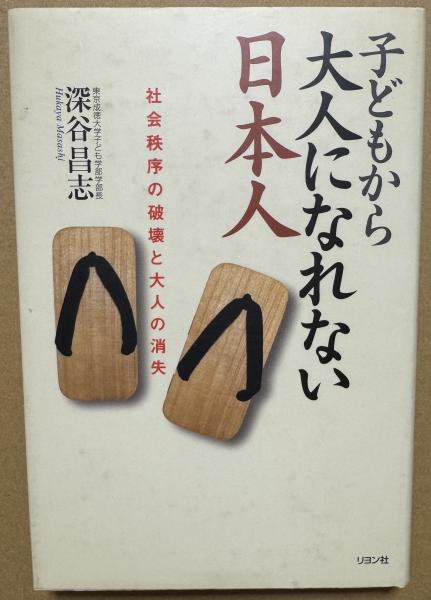 子どもから
大人になれない
日本人
社会秩序の破壊と大人の消失
東京成徳大学子ども学部学部長
深谷昌志
Hukaya Masashi
リヨン社